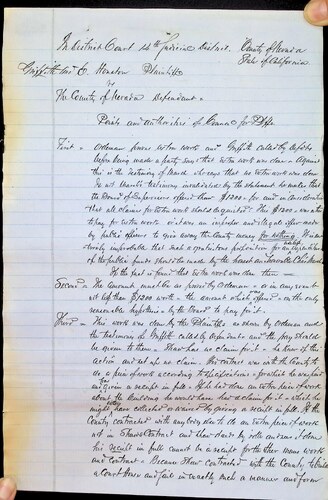 In District Court 14th Judicial District. County of Nevada
State of California
Griffith and E. Heuston Plaintiffs
vs
The County of Nevada Defendant
Points and authorities of Counsel for Plffs
First - Ordeman knows extra work and Griffith called by defts
before being made a party says that extra work was done - Against
this is the testimony of who says that no extra work was done
Is not testimony invalidated by the statement he makes that
the Board of Supervisors offered them $1200 - for and in consideration
that all claims for extra work should be quitted. The $1200 - was
to pay for extra work or it was an unjust and illegal offer made
by public officers to give away the County money for nothing. It is an
improbable that such a gratuitous proposition for
of the public funds should be made by the
If the fact is found that extra work was done then -
Second - The amount must be as proved by Ordeman - or in any event
not less than $1200 worth - the amount which was offered - on the only
reasonable hypothesis - by the Board to pay for it.
Third - This work was done by the Plaintiffs as shown by Ordeman and
the testimony of Griffith called by defendant - and the pay should
be given to them. has no claim for it - he knew of this
action and set up no claim. His contract was with the County to
do a piece of work according to specifications - for which he was paid
and given a receipt in full. If he had done an extra piece of work
about the building he would have had a claim for it - which he
might have collected or waived by giving a receipt in full. If the
County contracted with any body else to do an extra piece of work
not in Contract and
his receipt in full cannot be a receipt for other mans work
and contract - Because contracted with the County to build
a Court House and Jail in exactly such a manner and form